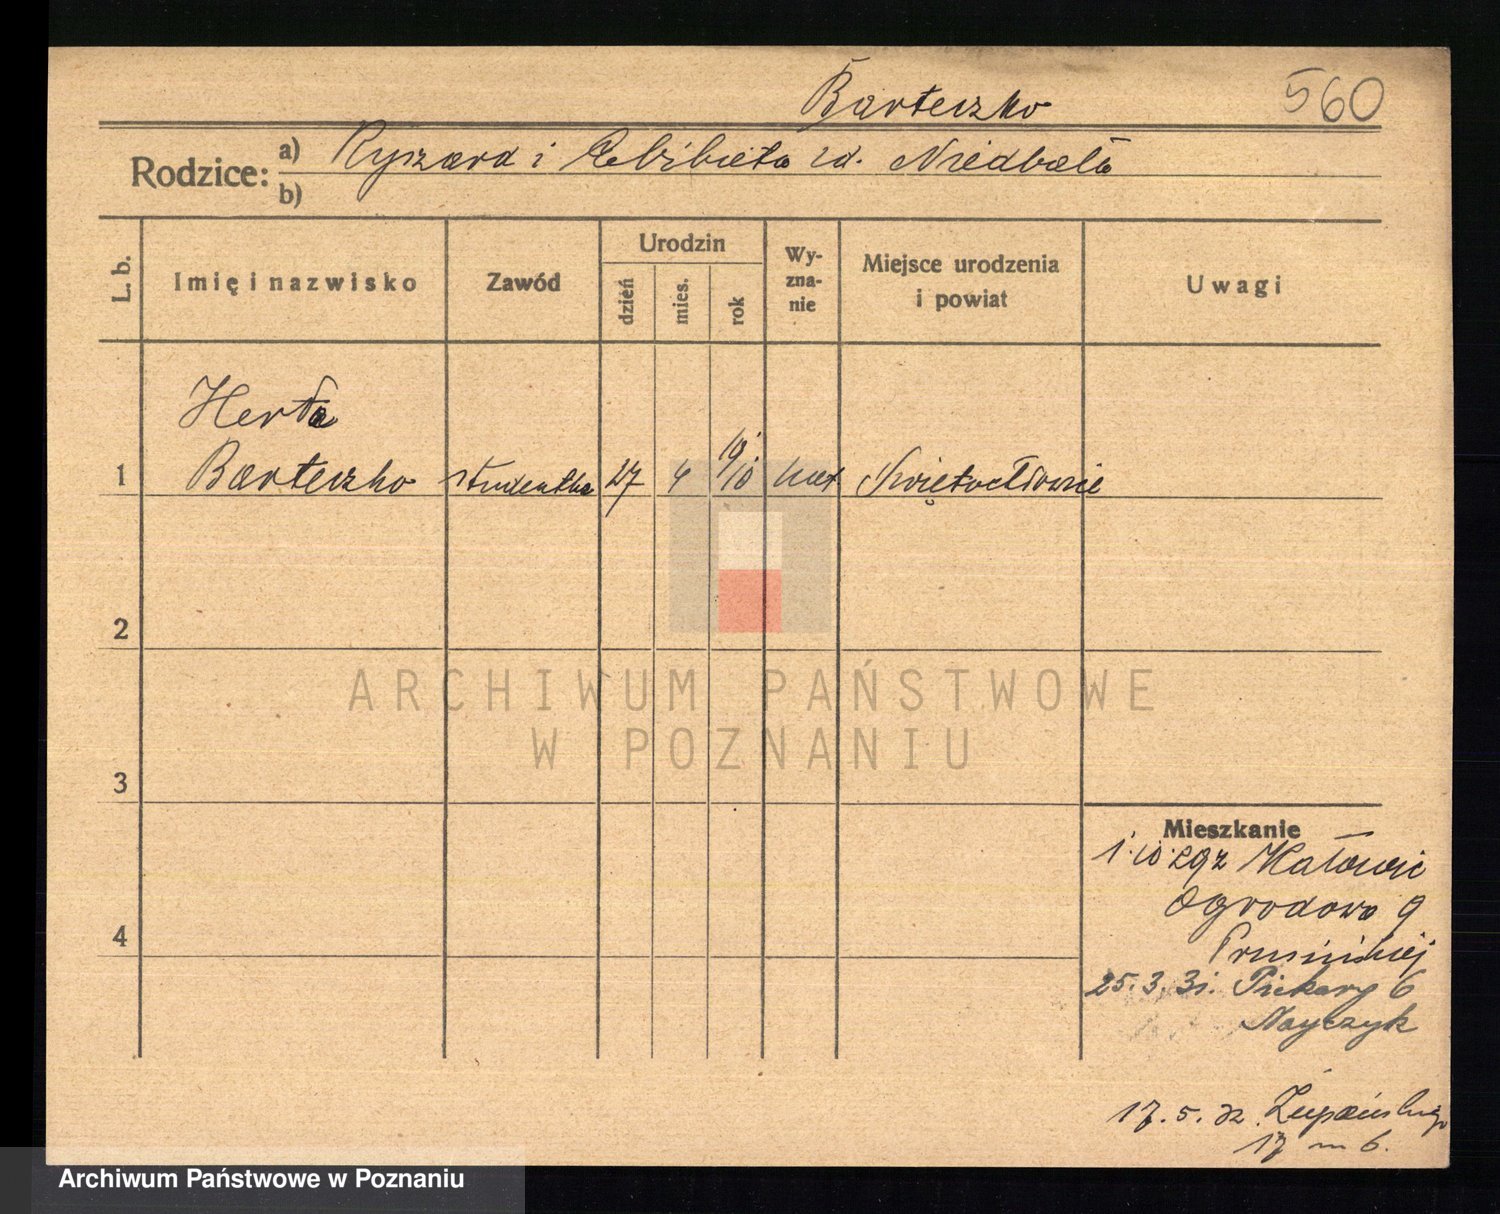 Barteczko
560
Rodzice: a) Ryszard i Elżbieta zd. Niedbała
b)
L. b.
Imię i nazwisko
Zawód
Urodzin
dzień
mies.
rok
Wy-
zna-
nie
Miejsce urodzenia
i powiat
Uwagi
Herta
1 Barteczko studentka 27 4 10 kat Świętochłowice
2
3
4
Mieszkanie
Katowic
Ogrodowa 9
25.3.31. Piekary 6
17.5.32 Żupańskiego
17 m 6.
ARCHIWUM PAŃSTWOWE
W POZNANIU
Archiwum Państwowe w Poznaniu